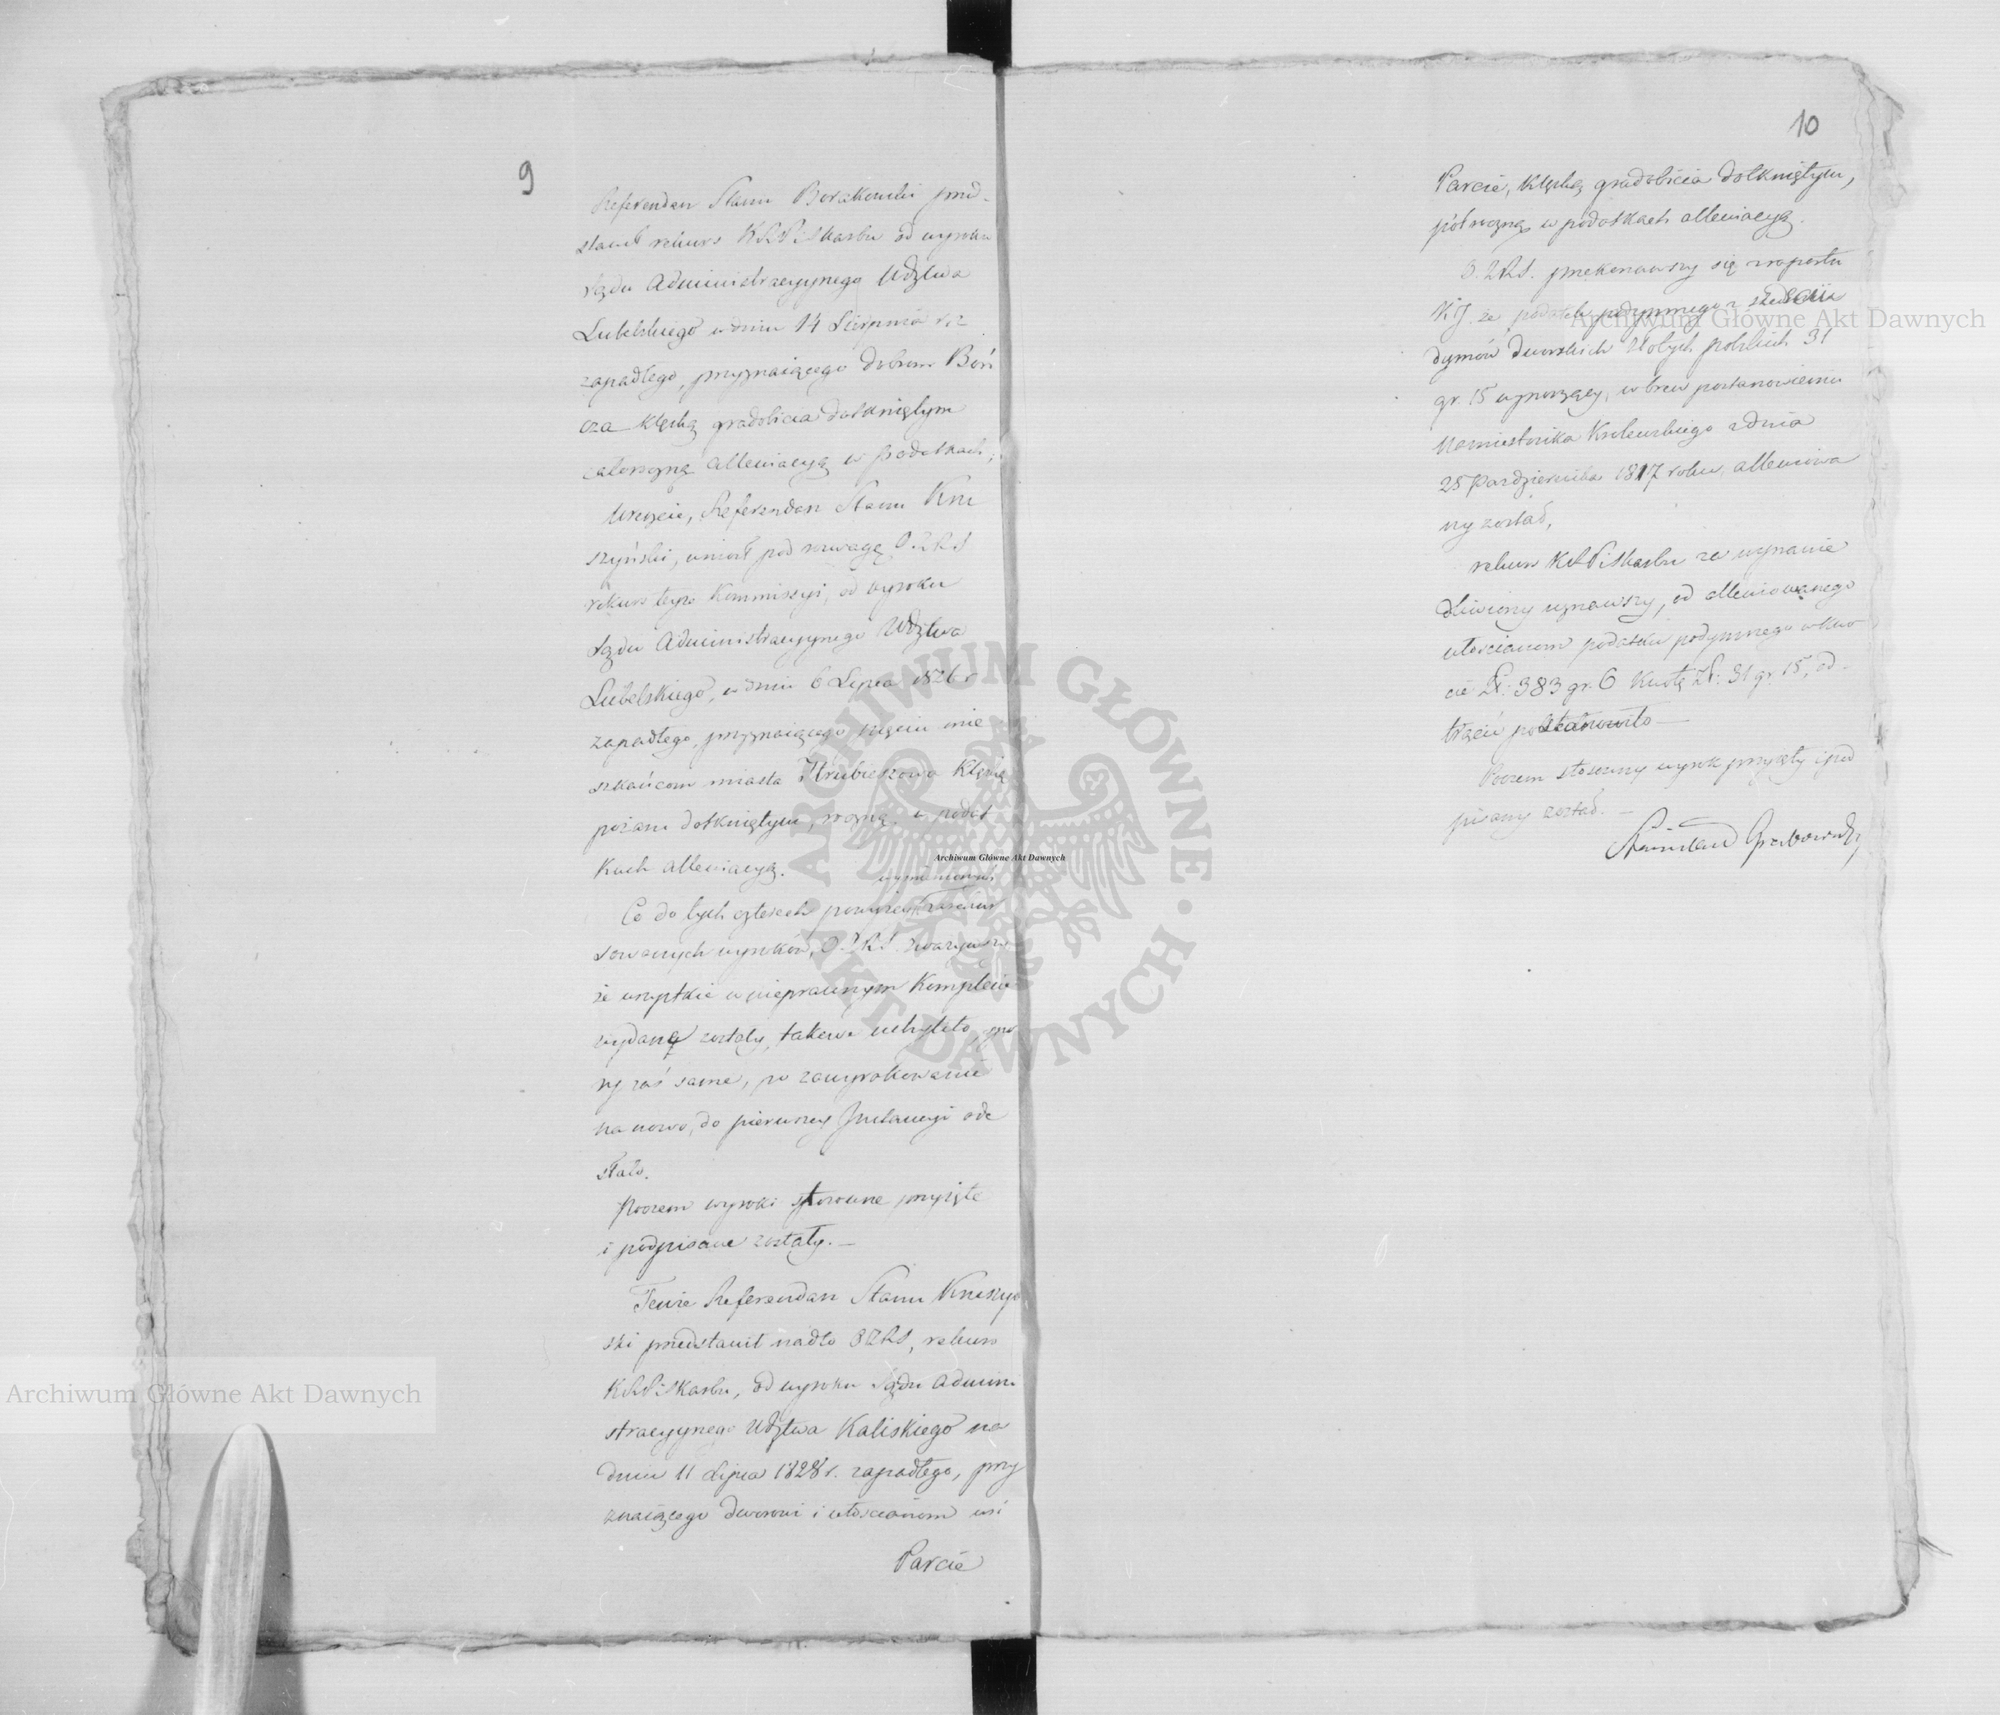 9
Referendarz Stanu Borakowski przed-
stawił rekurs KRPiSkarbu od wyroku
Sądu Administracyjnego Wdztwa
Lubelskiego w dniu 14 Sierpnia r.z
zapadłego, przyznaiącego dobrom Boń
cza klęską gradobicia dotkniętym
całoroczną allewiacyą w podatkach;
Wreszcie, Referendarz Stanu Kru
szyński, wniósł pod rozwagę O.Z.R.S
rekurs tejże Kommissyi, od wyroku
Sądu Administracyjnego Wdztwa
Lubelskiego, w dniu 6 Lipca 1826 r
zapadłego, przyznaiącego pięciu mie
szkańcom miasta Hrubieszowa klęską
pożaru dotkniętym, roczną w podat
kach allewiacyą.
Co do tych czterech powyżey wymienionych
sowanych wyroków, O.Z.R.S. zważywszy
że wszystkie w nieprawnym Komplecie
wydane zostały, takowe uchyliło, spra
wy zaś same, po zawyrokowanie
na nowo, do pierwszey Instancyi ode
słało.
Poczem wyroki stosowne przyięte
i podpisane zostały. —
Tenże Referendarz Stanu Kruszyń
ski przedstawił nadto OZRS, rekurs
KRPiSkarbu, od wyroku Sądu Admini
stracyjnego Wdztwa Kaliskiego na
dniu 11 Lipca 1828 r. zapadłego, przy
znaiącego dworowi i włościanom wsi
Parcie
10
Parcie, klęską gradobicia dotkniętym,
półroczną w podatkach allewiacyą.
O.Z.R.S. przekonawszy się z raportu
że podatek podymnego z siedmiu
dymów dworskich Złotych polskich 31
gr. 15 wynoszący, wbrew postanowieniu
Namiestnika Królewskiego z dnia
25 Października 1817 roku, allewiowa
ny został,
rekurs KRPiSkarbu za wynanie
dliwiony uznawszy, od allewiowanego
włościanom podatku podymnego w kwo
cie Zł: 383 gr. 6 kwotę Zł: 31 gr. 15, od-
trącić postanowiło —
Poczem stosowny wyrok przyięty i pod
pisany został. —
Stanisław Grabowski
Archiwum Główne Akt Dawnych
Archiwum Główne Akt Dawnych
Archiwum Główne Akt Dawnych
ARCHIWUM GŁÓWNE • AKT DAWNYCH •